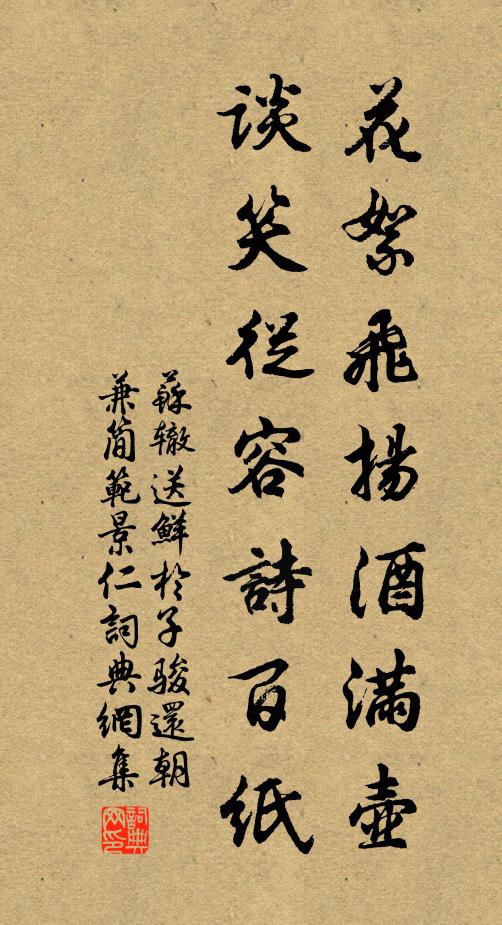 花絮飛揚酒滿壺
談笑從容詩百紙
蘇轍送鮮於子駿還朝
兼簡範景仁詞典網集
詞典
网印